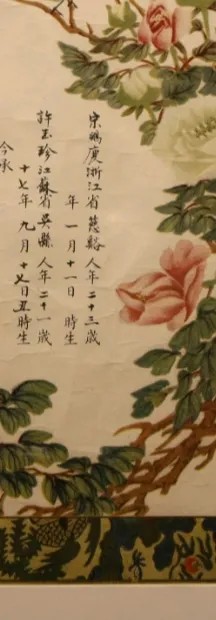 宋鵬慶浙江省慈谿 人年二十三歲
年 一月十一日 時生
許玉珍江蘇省吳縣 人年二十一歲
十七年 九月十七日丑時生
今承